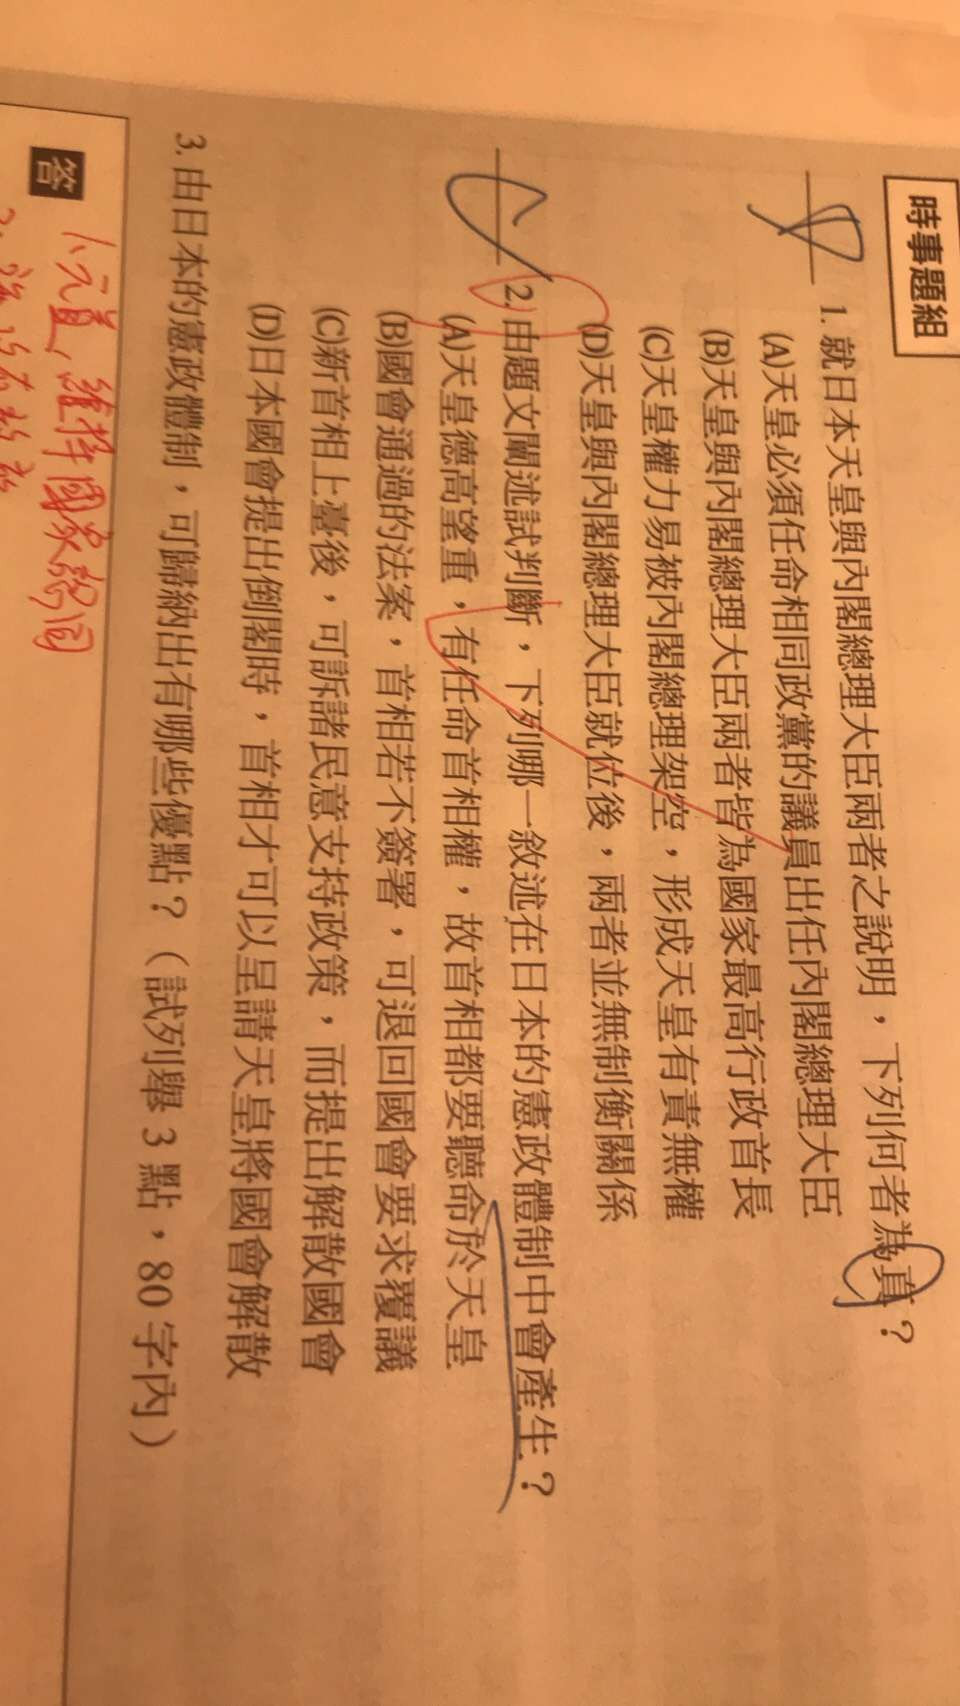 時事題組
1. 就日本天皇與內閣總理大臣兩者之說明，下列何者為真？
(A)天皇必須任命相同政黨的議員出任內閣總理大臣
(B)天皇與內閣總理大臣兩者皆為國家最高行政首長
(C)天皇權力易被內閣總理架空，形成天皇有責無權
(D)天皇與內閣總理大臣就位後，兩者並無制衡關係
2. 由題文闡述試判斷，下列哪一敘述在日本的憲政體制中會產生？
(A)天皇德高望重，有任命首相權，故首相都要聽命於天皇
(B)國會通過的法案，首相若不簽署，可退回國會要求覆議
(C)新首相上臺後，可訴諸民意支持政策，而提出解散國會
(D)日本國會提出倒閣時，首相才可以呈請天皇將國會解散
3. 由日本的憲政體制，可歸納出有哪些優點？（試列舉 3 點，80 字內）
答
1、元首，維持國家